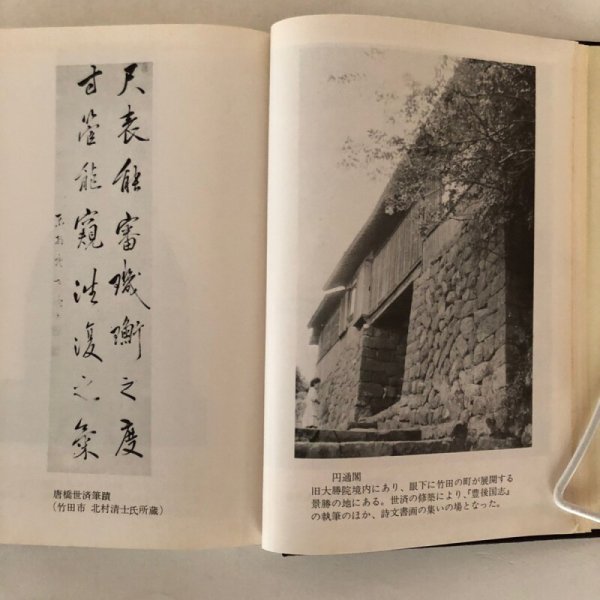 尺表能審璣衡之度
寸管能窺往復之氣
唐橋世済筆蹟
(竹田市 北村清士氏所蔵)
円通閣
旧大勝院境内にあり、眼下に竹田の町が展開する
景勝の地にある。世済の修築により、『豊後国志』
の執筆のほか、詩文書画の集いの場となった。